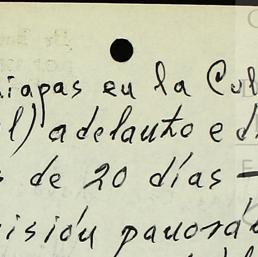 iapas en la Cul
l) adelanto e di
s de 20 días —
isión panorá